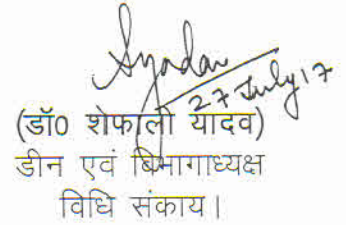 Syadav
27 July 17
(डॉ0 शेफाली यादव)
डीन एवं विभागाध्यक्ष
विधि संकाय।